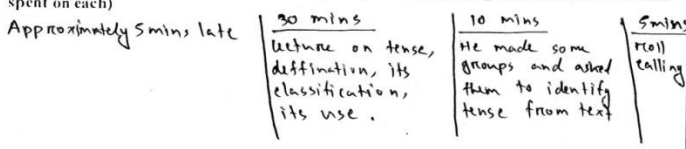 spent on each)
Approximately 5 mins late
30 mins
lecture on tense,
deffination, its
classification,
its use.
10 mins
He made some
groups and asked
them to identify
tense from text
5 mins
roll
calling